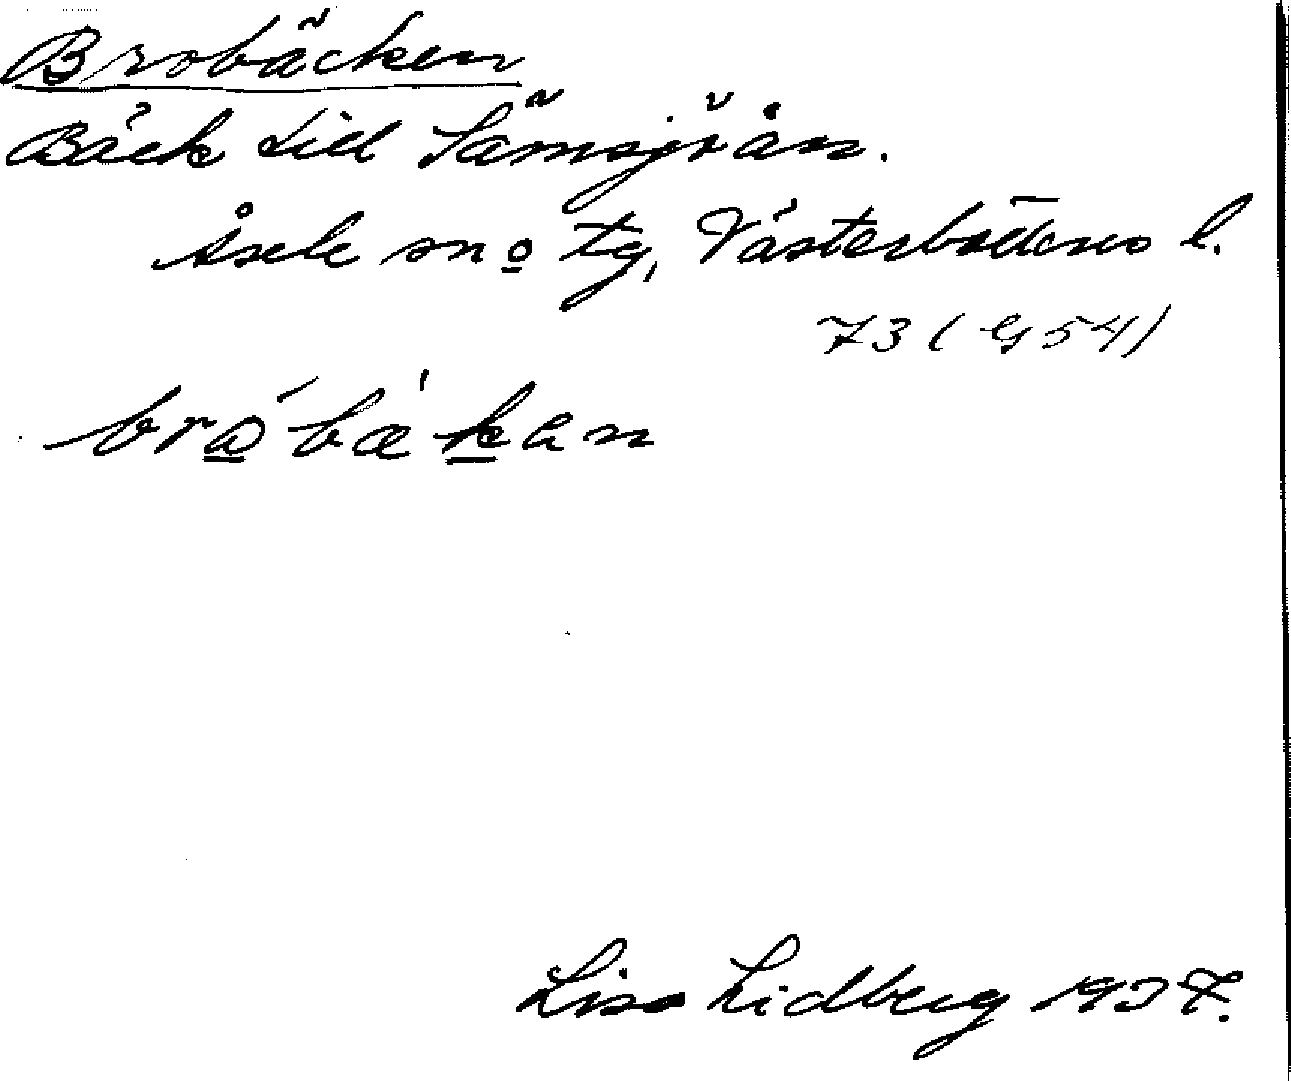 Brobäcken
Bäck till Sämsjöån.
Åsele sn o tg, Västerbottens l.
73 ( G 54)
bra´bæ`kan
Lisa Lidberg 1937.